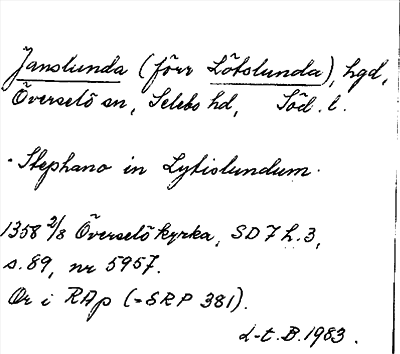 Janslunda (förr Lötslunda), hgd,
Överselö sn, Selebo hd, Söd. l.
"Stephano in Lytislundum"
1358 2/8 Överselö kyrka, SD 7 h. 3,
s. 89, nr 5957.
Or i RAp (=SRP 381).
L-t. B. 1983.